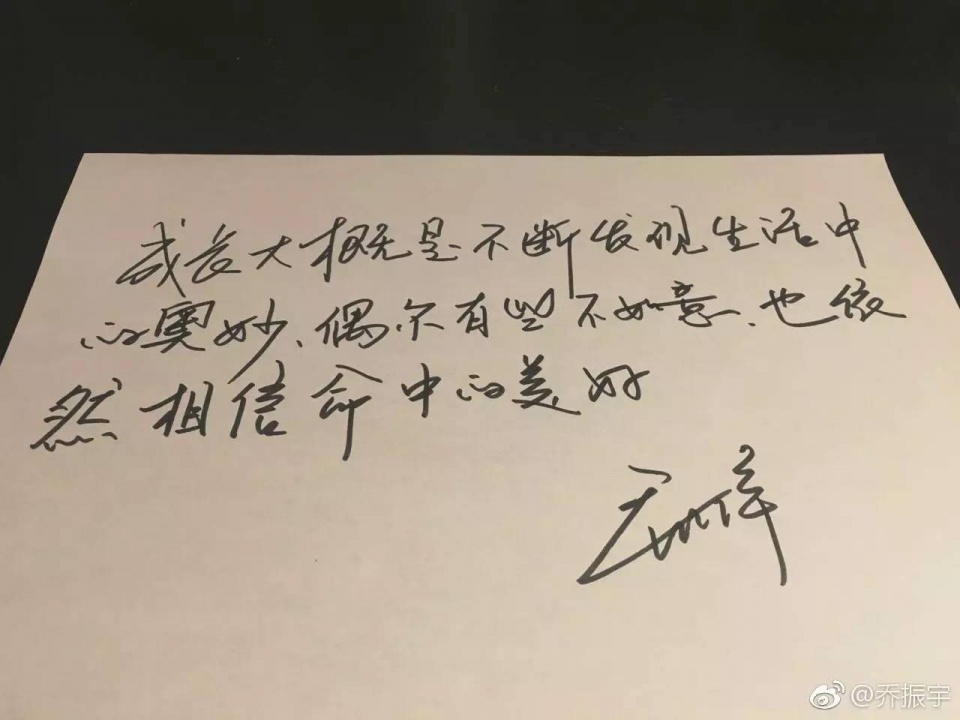 成长大概是不断发现生活中
的奥妙、偶尔有些不如意、也依
然相信命中的美好
@乔振宇